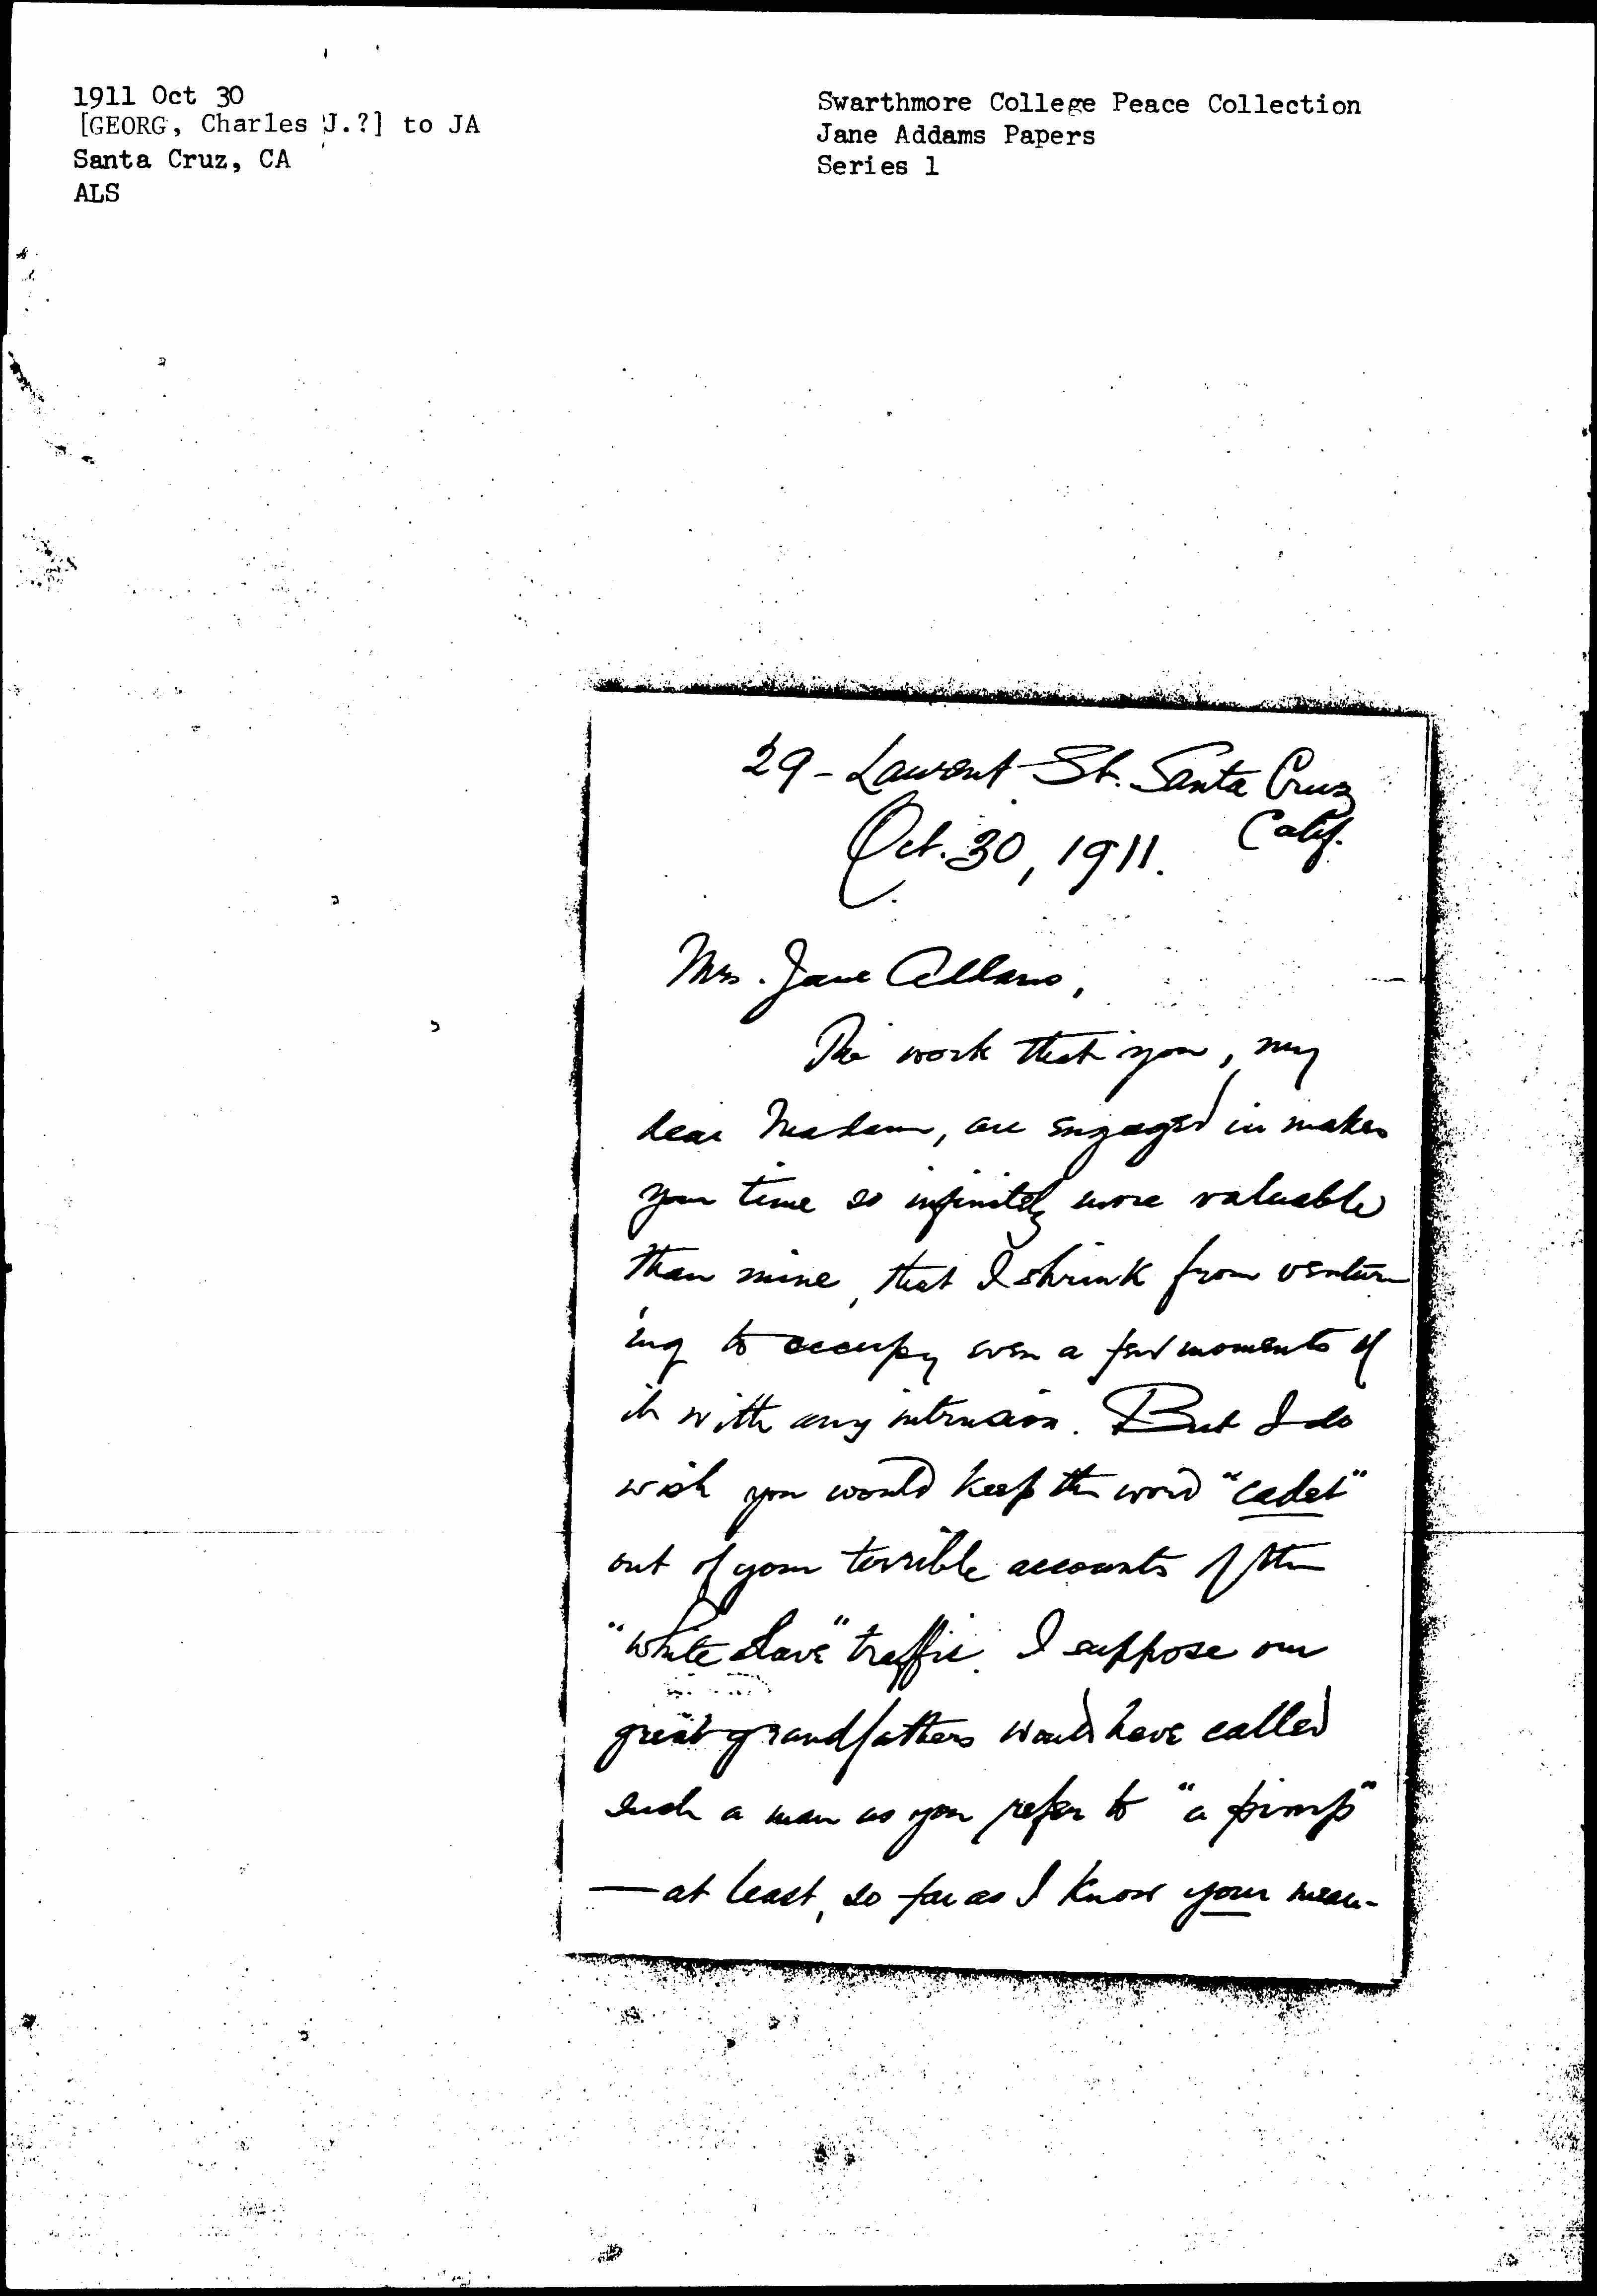 1911 Oct 30
[GEORG, Charles J.?] to JA
Santa Cruz, CA
ALS
Swarthmore College Peace Collection
Jane Addams Papers
Series 1
29 - Laurent St. Santa Cruz
Calif.
Oct. 30, 1911.
Mrs. Jane Addams,
The work that you, my
dear Madam, are engaged in makes
your time so infinitely more valuable
than mine, that I shrink from ventur
ing to occupy even a few moments of
it with any intrusion. But I do
wish you would keep the word "cadet"
out of your terrible accounts of the
"white slave" traffic. I suppose our
great grandfathers would have called
such a man as you refer to "a pimp"
— at least, so far as I know your mean-